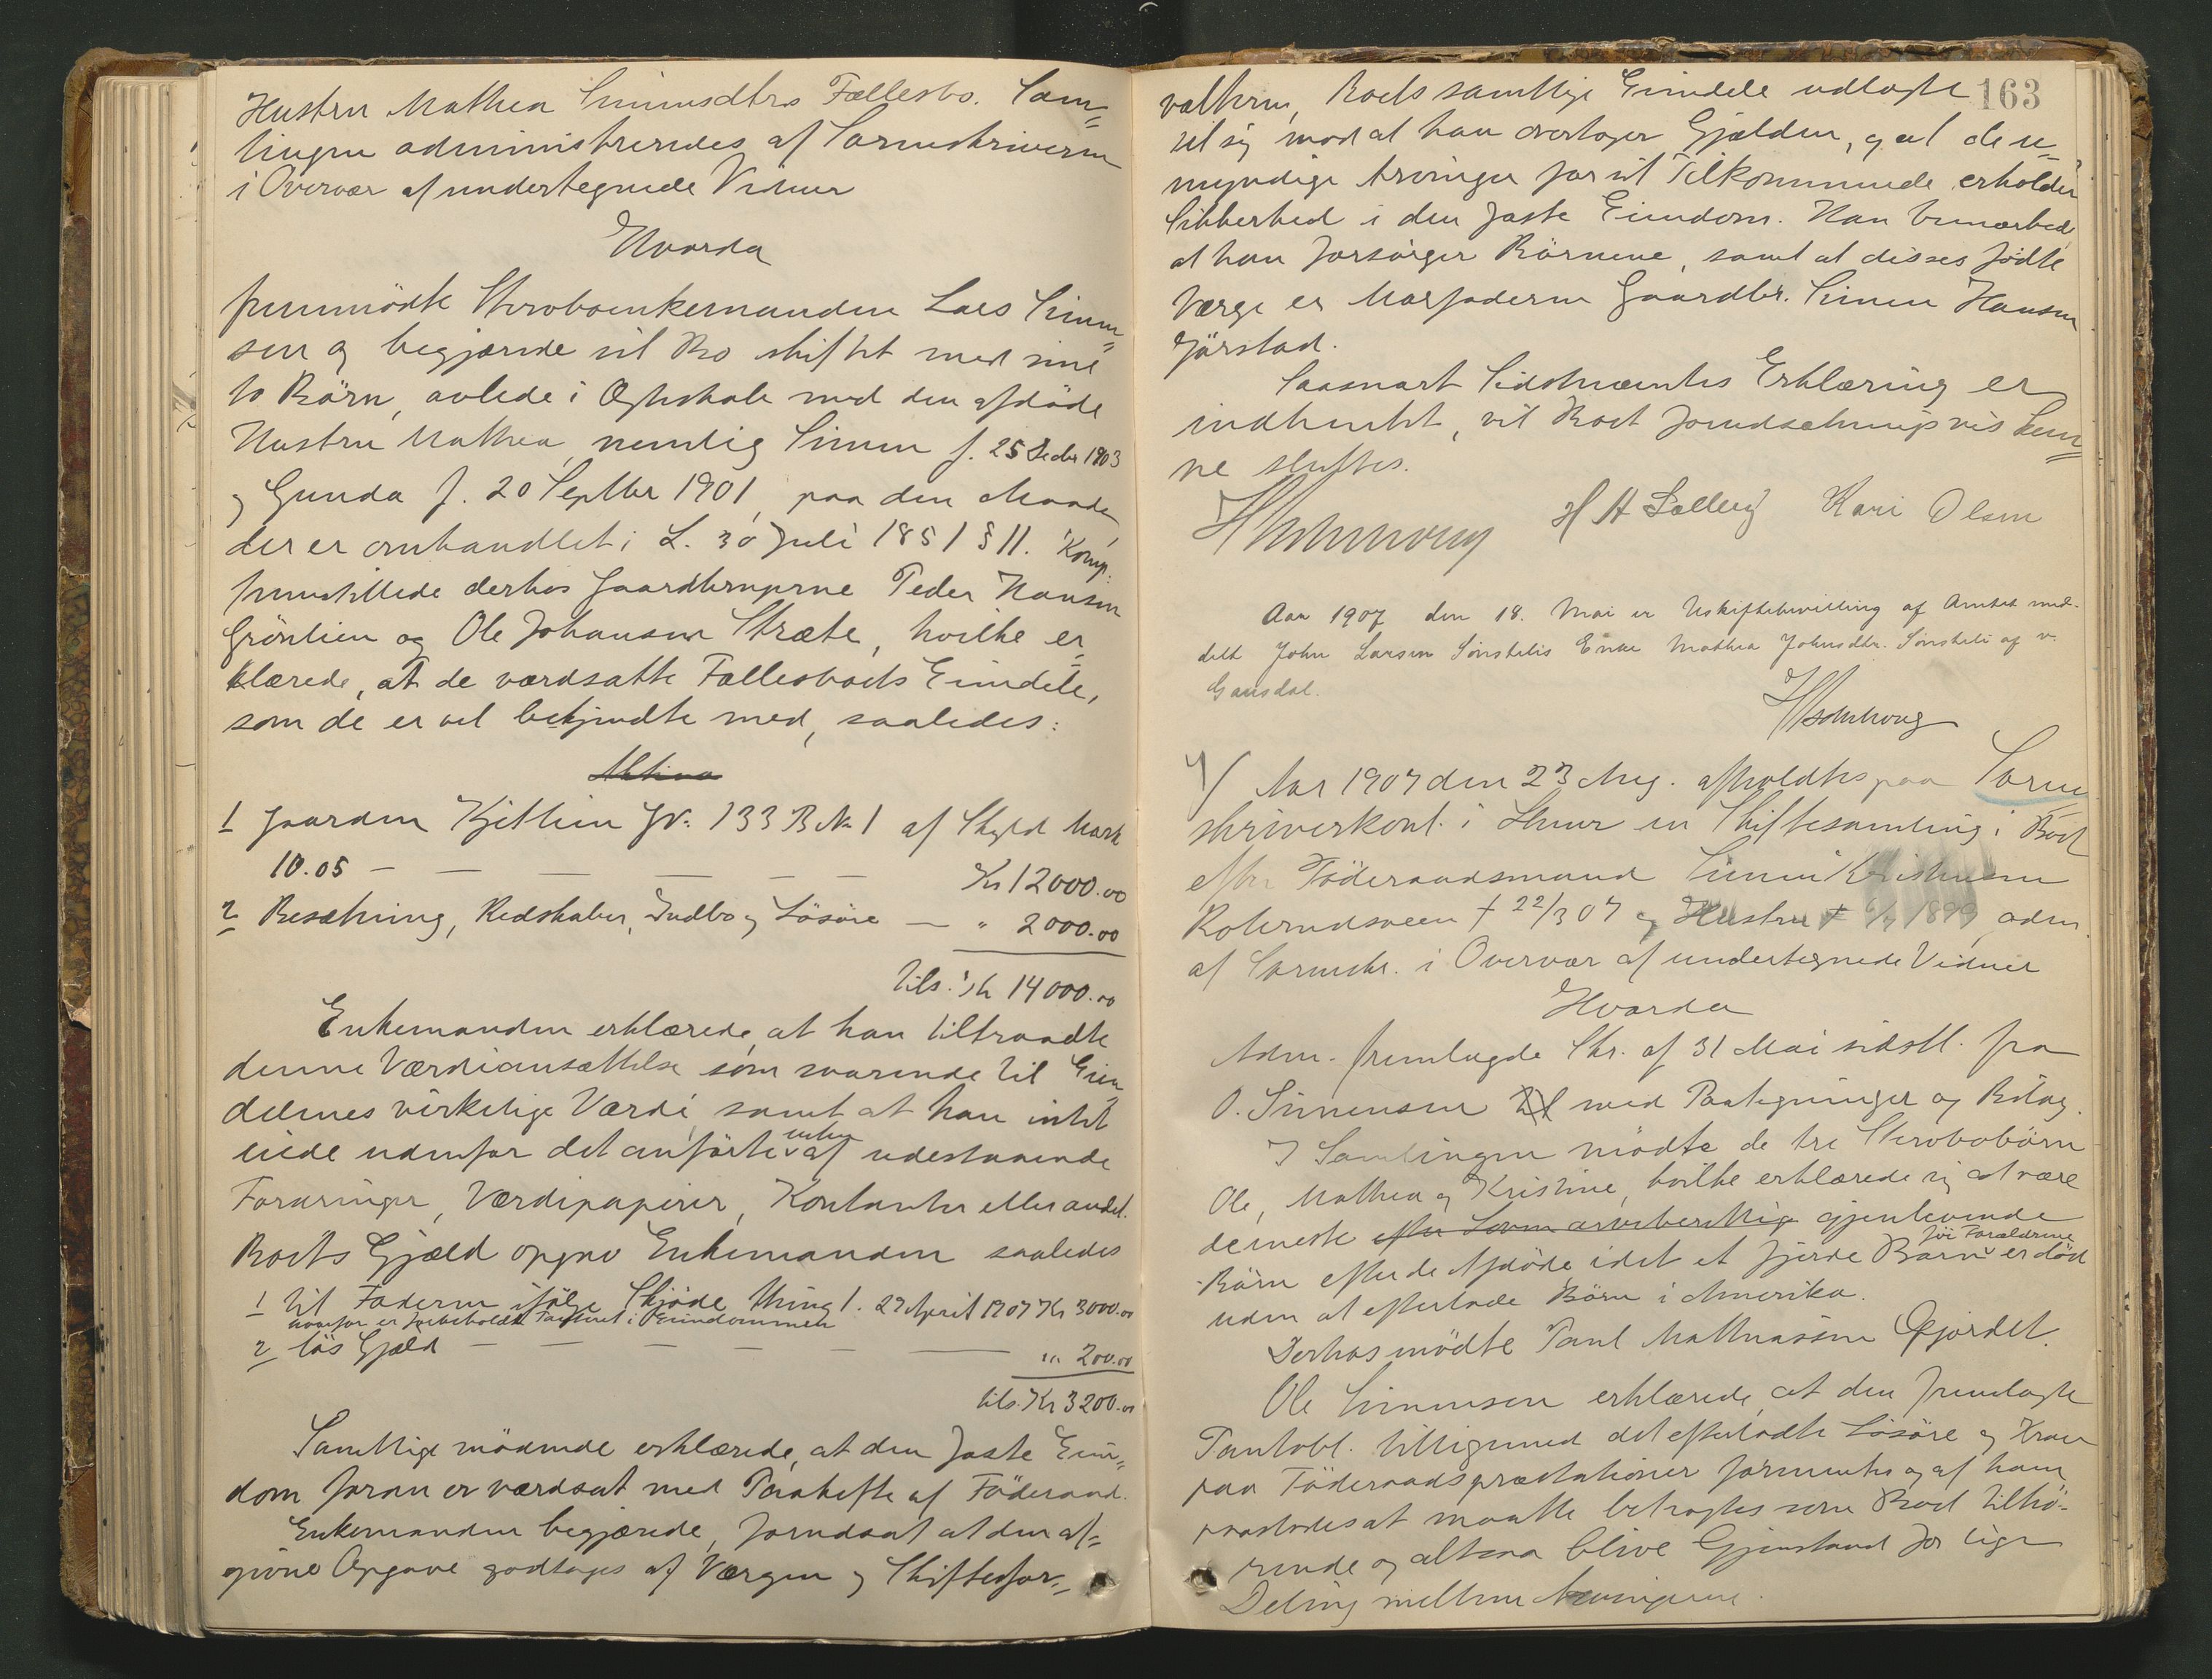 Hustru Mathea Simensdtrs Fællesbo. Sam=
lingen administreredes af Sorenskriveren
i Overvær af undertegnede Vidner
Hvorda
fremmödte Stervboenkemanden Lars Simen=
sen og begjærede sit Bo skiftet med sine
to Börn, avlede i Ægteskab med den afdöde
Hustru Mathea, nemlig Simen f. 25 Decbr 1903
og Gunda f. 20 Septbr 1901, paa den Maade,
der er omhandlet i L. 30 Juli 1851 § 11. Komp.
fremstillede derhos Gaardbrugerne Peder Hansen
Grönlien og Ole Johansen Stræte, hvilke er=
klærede, at de værdsatte Fællesboets Eiendele,
som de er vel bekjendte med, saaledes:
Aktiva
1 Gaarden Kjetlien GN: 133 B No 1 af Skyld Mark
10.05 — — — — — — Kr 12000.00
2 Besætning, Redskaber, Indbo og Lösöre — " 2000.00
tils. Kr 14000.00
Enkemanden erklærede, at han tiltraadte
denne Værdiansættelse som svarende til Eien=
delenes virkelige Værdi samt at han intet
eiede udenfor det anförte enten af udestaaende
Fordringer, Værdipapirer, Kontanter eller andet.
Boets Gjæld opgav Enkemanden saaledes
1 til Faderen ifölge Skjöde thingl. 27 April 1907 Kr 3000.00
hvorfor er forbeholdt Panteret i Eiendommen
2 lös Gjæld — — — — — " 200.00
tils. Kr 3200.00
Samtlige mödende erklærede, at den faste Eien=
dom foran er værdsat med Paaheftet af Föderaad.
Enkemanden begjærede, forudsat at den af=
givne Opgave godtages af Værgen og Skiftefor=
163
valteren, Boets samtlige Eiendele udlagte
til sig mod at han overtager Gjælden, og at de u=
myndige Arvinger for sit Tilkommende erholder
Sikkerhed i den faste Eiendom. Han bemærked
at han forsörger Börnene, samt at disses födte
Værge er Morfaderen Gaardbr. Simen Hansen
Jörstad.
Saasnart Sidstnævntes Erklæring er
indhentet, vil Boet forudsætningsvis kun=
ne sluttes.
H A Kari Olsen
Aar 1907 den 18. Mai er Uskiftebevilling af Amtet med-
delt John Larsen Sönstelis Enke Mathea Johnsdtr. Sönsteli af v.
Gausdal.
4/ Aar 1907 den 23 Aug. afholdtes paa Soren
skriverkont. i Skuur en Skiftesamling i Boet
efter Föderaadsmand Simen Kristensen
Roterudsveen † 22/3 07 og Hustru † 1899, adm.
af Sorenskr. i Overvær af undertegnede Vidner
Hvorda
Adm. fremlagde Skr. af 31 Mai sidstl. fra
O. Simensen med Paategninger og Bilag.
I Samlingen mödte de tre Stervbobörn
Ole, Mathea og Kristine, hvilke erklærede sig at være
de eneste efter Loven arveberettig gjenlevende
Börn efter de Afdöde idet et fjerde Barn för Forældrene er död
uden at efterlade Börn i Amerika.
Derhos mödte Paul Mathiassen Öfjordet.
Ole Simensen erklærede, at den fremlagte
Pantobl. tilligemed det efterladte Lösöre og Krav
paa Föderaadspræstationer formentes og af ham
paastodes at maatte betragtes som Boet tilhö-
rende og altsaa blive Gjenstand for lige
Deling mellem Arvingerne.